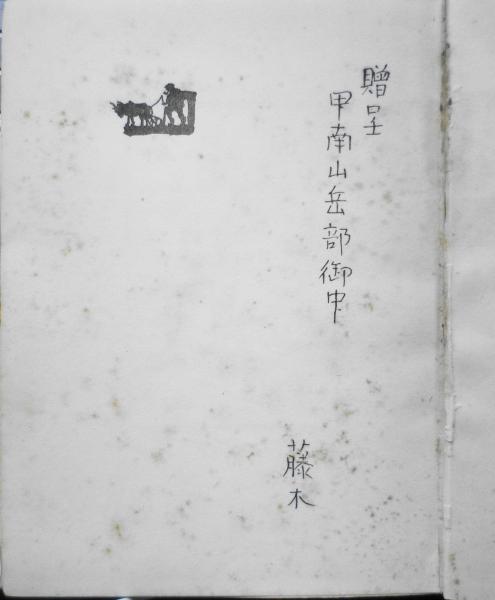 贈呈
甲南山岳部御中
藤木